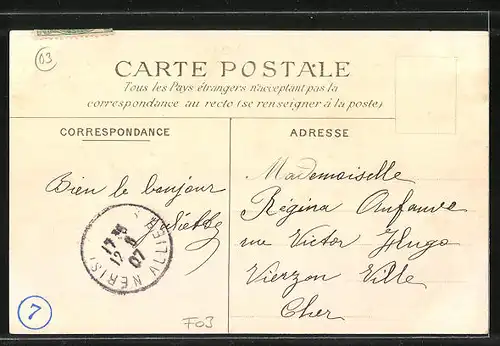 03
CARTE POSTALE
Tous les Pays étrangers n'acceptant pas la
correspondance au recto (se renseigner à la poste)
CORRESPONDANCE
ADRESSE
Bien le bonjour
Juliette
Mademoiselle
Régina
rue Victor Hugo
Vierzon Ville
Cher
NERIS
ALLIER
12 8
07
7
F03